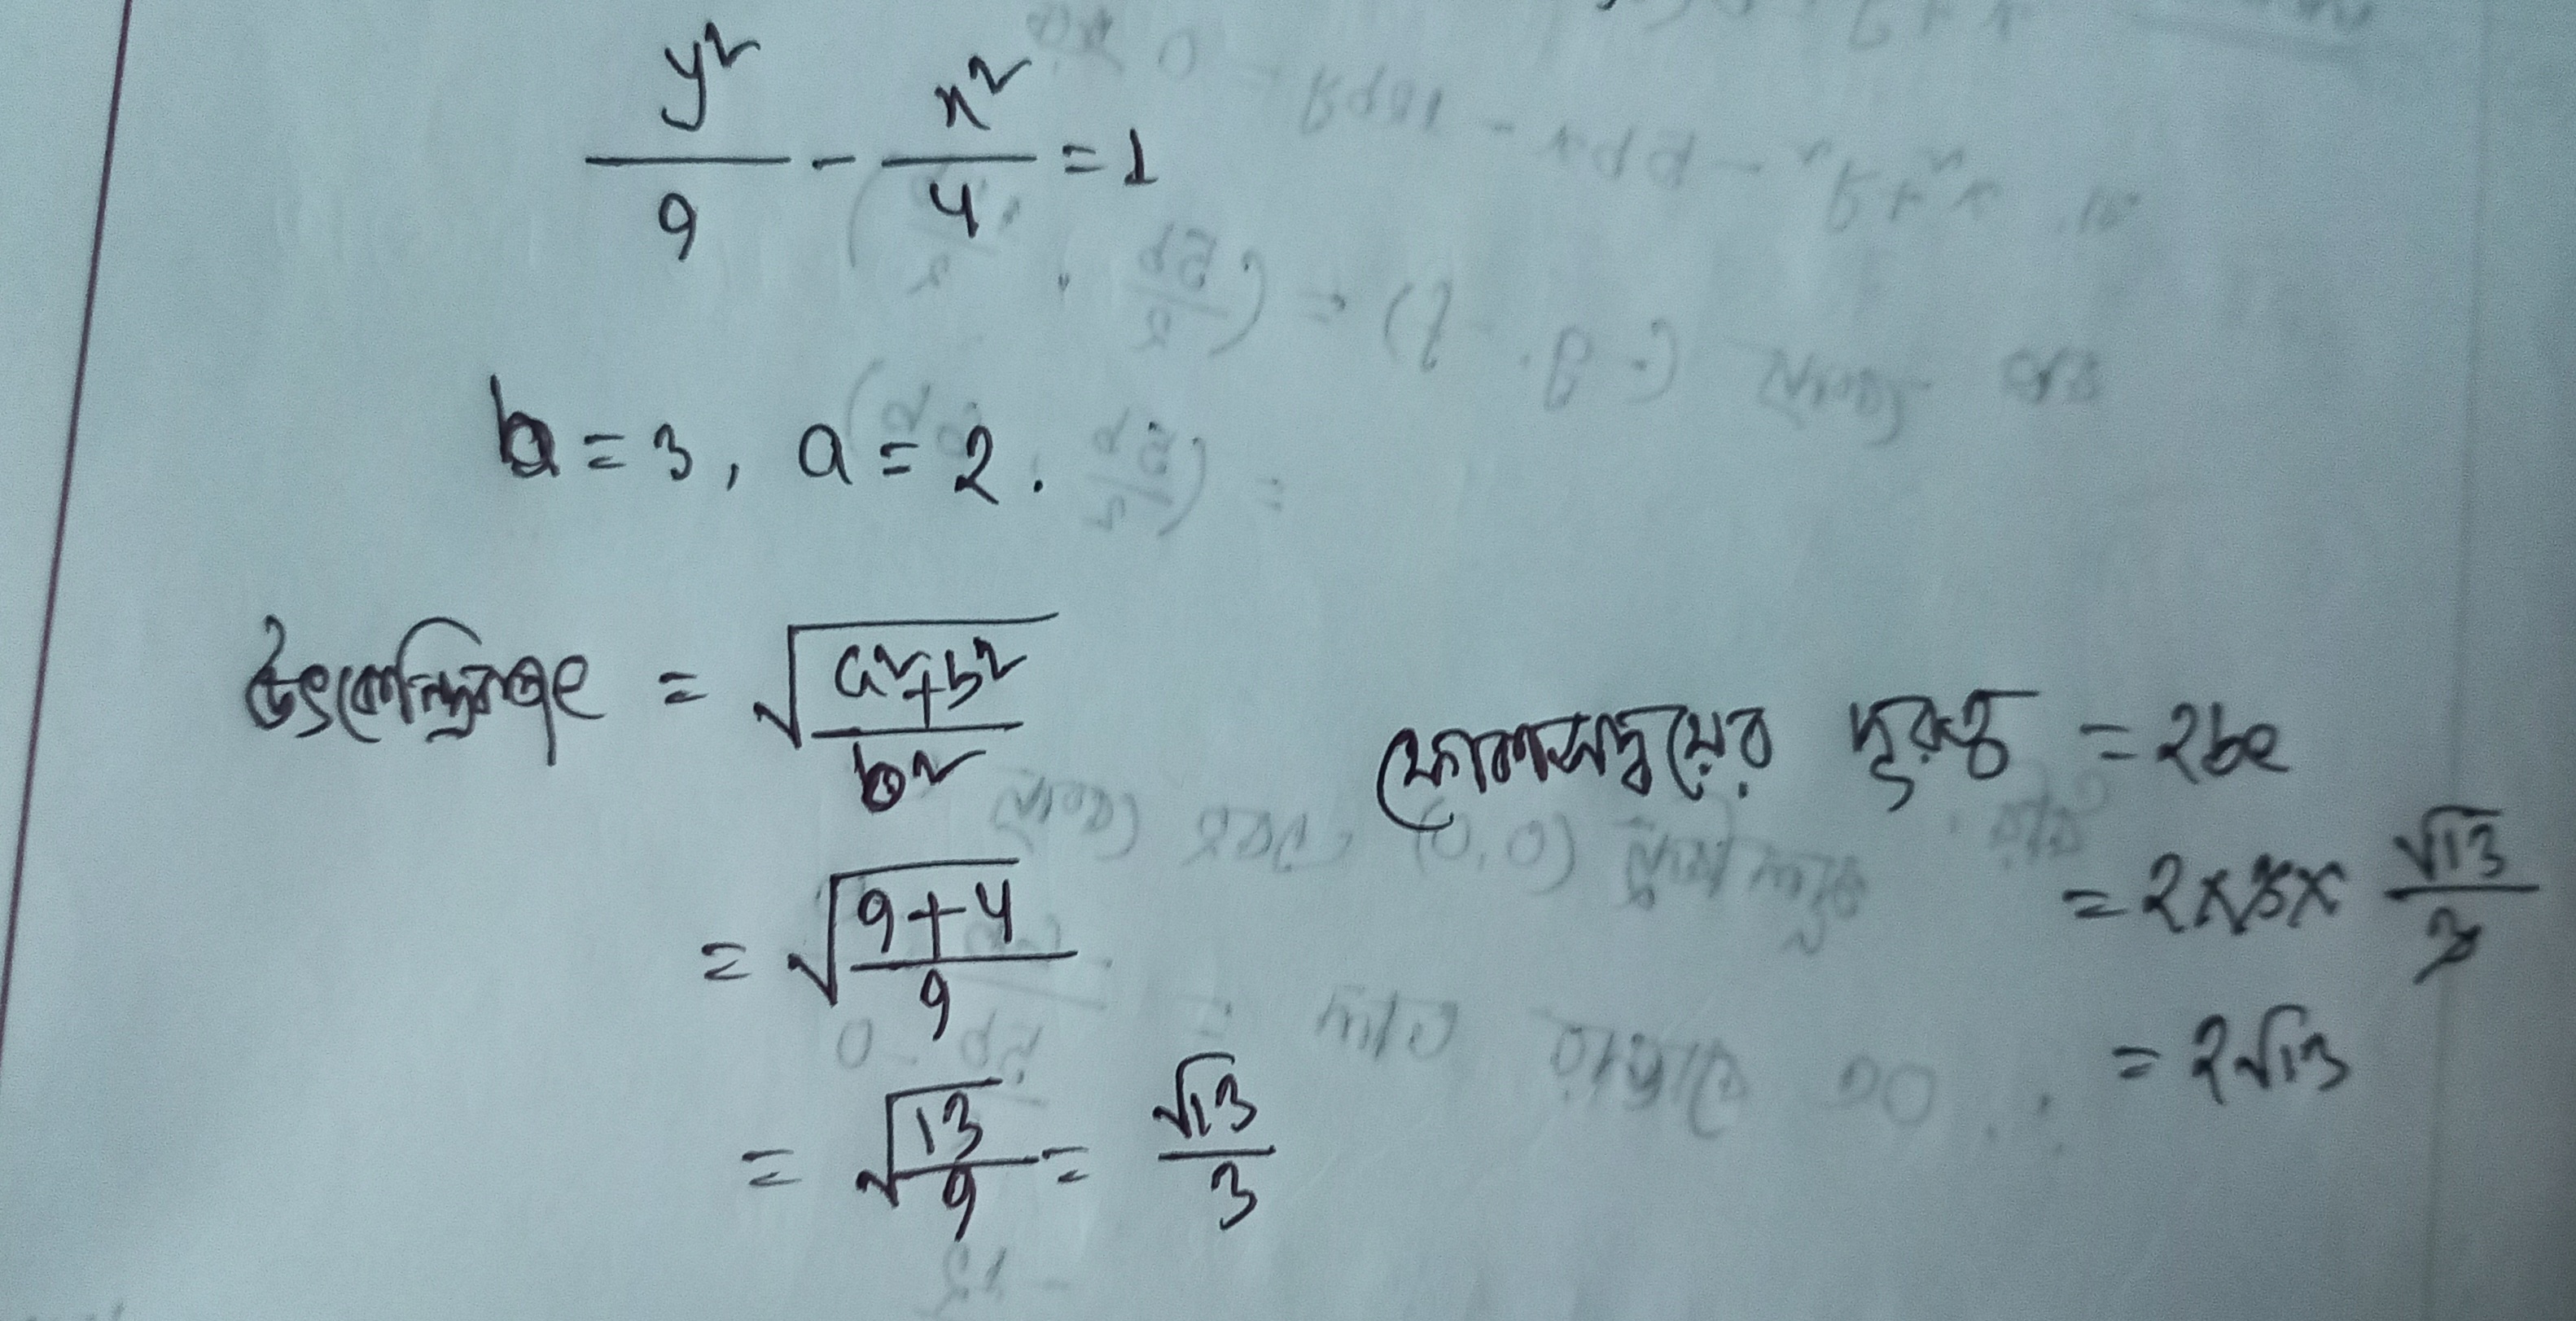 y²/9 - x²/4 = 1
b = 3, a = 2.
উৎকেন্দ্রিকতা = √((a²+b²)/b²)
= √((9+4)/9)
= √(13/9) = √13/3
ফোকাসদ্বয়ের দূরত্ব = 2be
= 2×3× √13/3
= 2√13